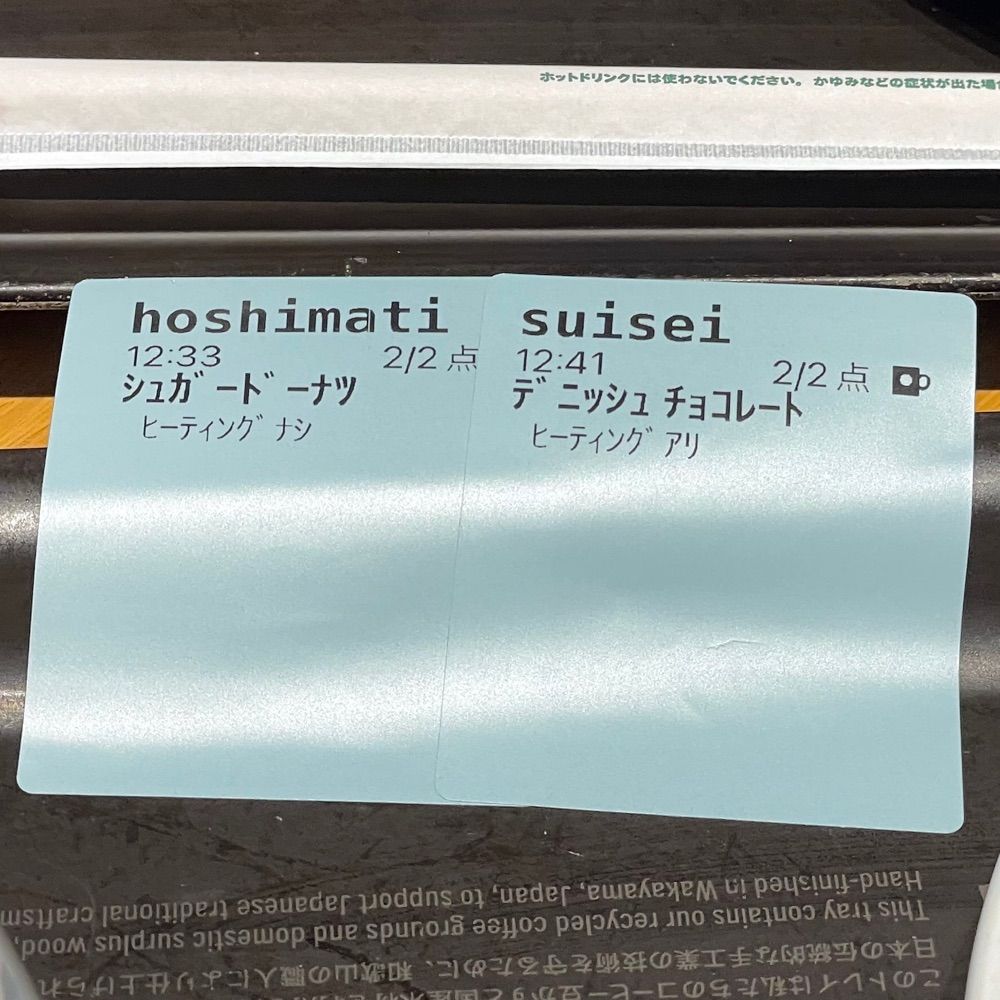 ホットドリンクには使わないでください。かゆみなどの症状が出た場合
hoshimati
12:33 2/2 点
シュガードーナツ
ヒーティング ナシ
suisei
12:41 2/2 点
デニッシュ チョコレート
ヒーティング アリ
このトレイは私たちのコーヒー豆かすと国産
日本の伝統的な手工業の技術を守るために、和歌山の職人により仕上げられ
This tray contains our recycled coffee grounds and domestic surplus wood,
Hand-finished in Wakayama, Japan, to support Japanese traditional craftsm